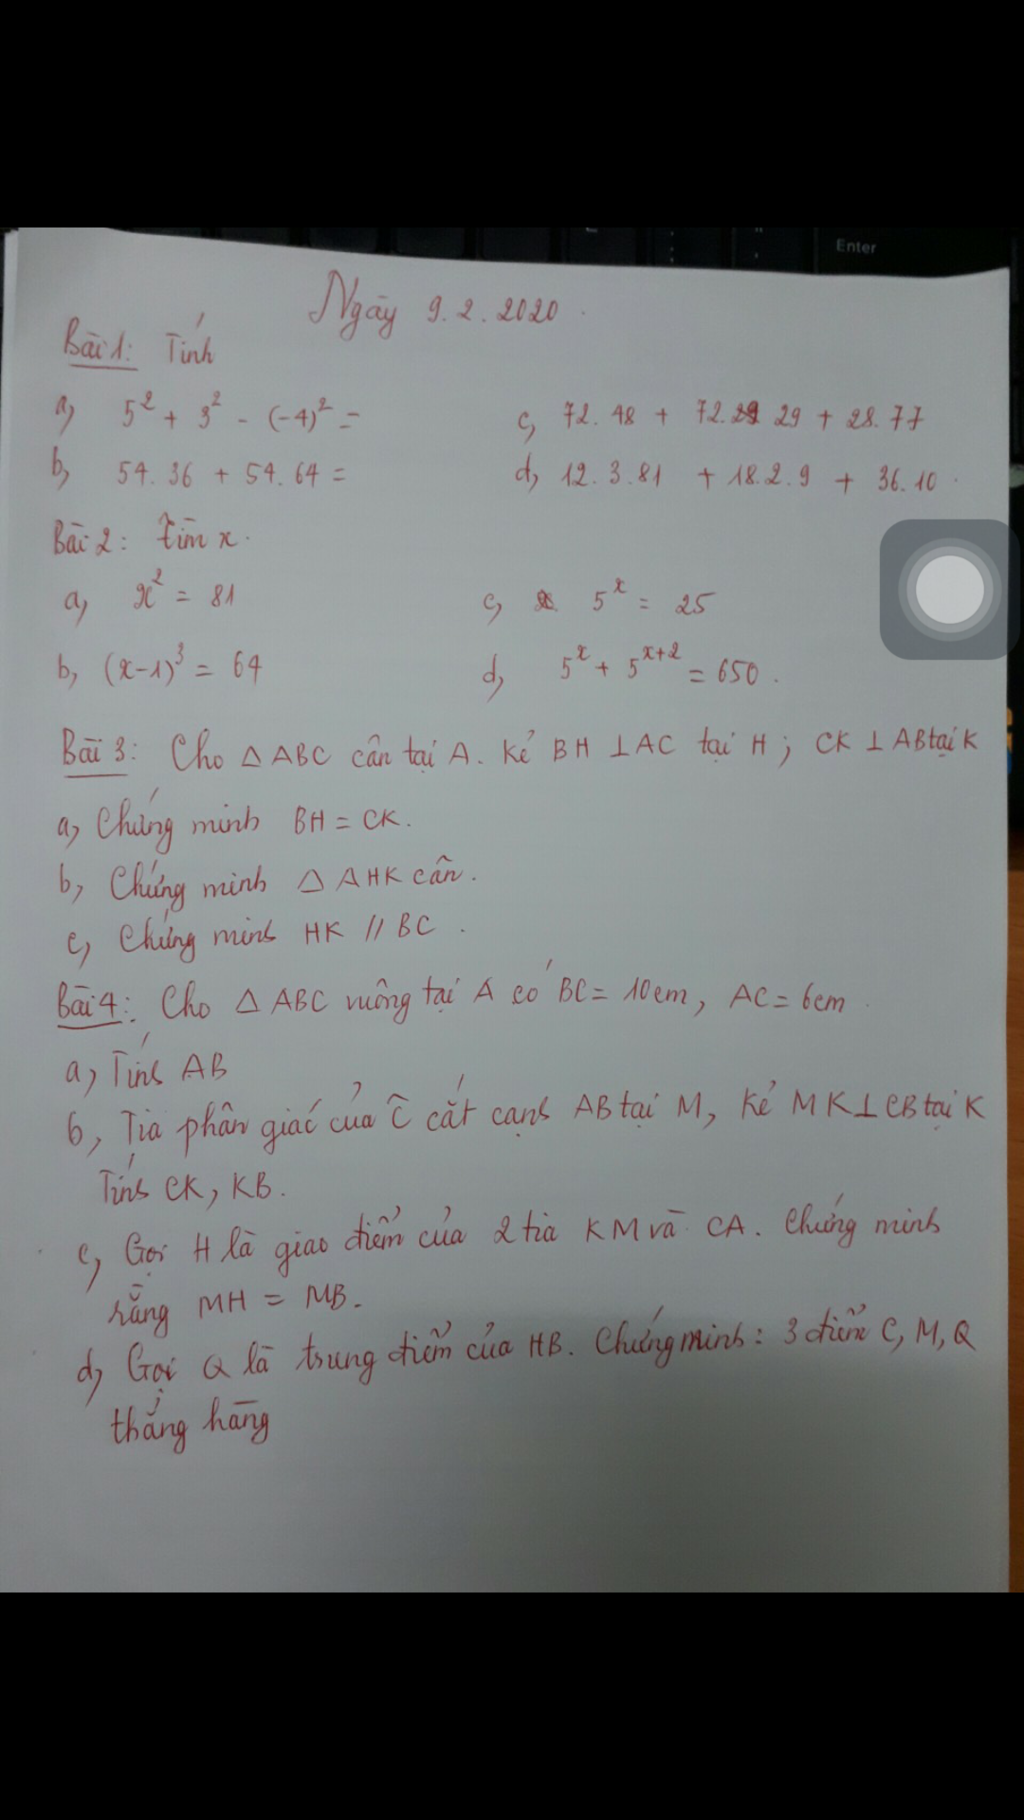 Enter
Ngày 9.2.2020.
Bài 1: Tính
a, 5² + 3² - (-4)² =
c, 72.48 + 72. 29 + 28.77
b, 54.36 + 54.64 =
d, 12.3.81 + 18.2.9 + 36.10.
Bài 2: Tìm x.
a, x² = 81
c, 5ˣ = 25
b, (x-1)³ = 64
d, 5ˣ + 5ˣ⁺² = 650.
Bài 3: Cho △ ABC cân tại A. Kẻ BH ⊥ AC tại H; CK ⊥ AB tại K
a, Chứng minh BH = CK.
b, Chứng minh △ AHK cân.
c, Chứng minh HK // BC.
Bài 4: Cho △ ABC vuông tại A có BC = 10cm, AC = 6cm.
a, Tính AB
b, Tia phân giác của Ĉ cắt cạnh AB tại M, kẻ MK ⊥ CB tại K
Tính CK, KB.
c, Gọi H là giao điểm của 2 tia KM và CA. Chứng minh
rằng MH = MB.
d, Gọi Q là trung điểm của HB. Chứng minh: 3 điểm C, M, Q
thẳng hàng